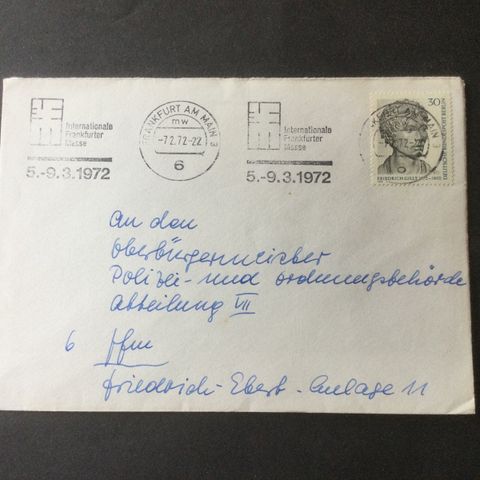 Internationale
Frankfurter
Messe
5.-9.3.1972
FRANKFURT AM MAIN 3
mw
-7.2.72-22
6
Internationale
Frankfurter
Messe
5.-9.3.1972
30
DEUTSCHE BUNDESPOST BERLIN
FRIEDRICH GILLY 1772-1800
An den
Oberbürgermeister
Polizei- und Ordnungsbehörde
Abteilung VII
6 Ffm
Friedrich-Ebert-Anlage 11